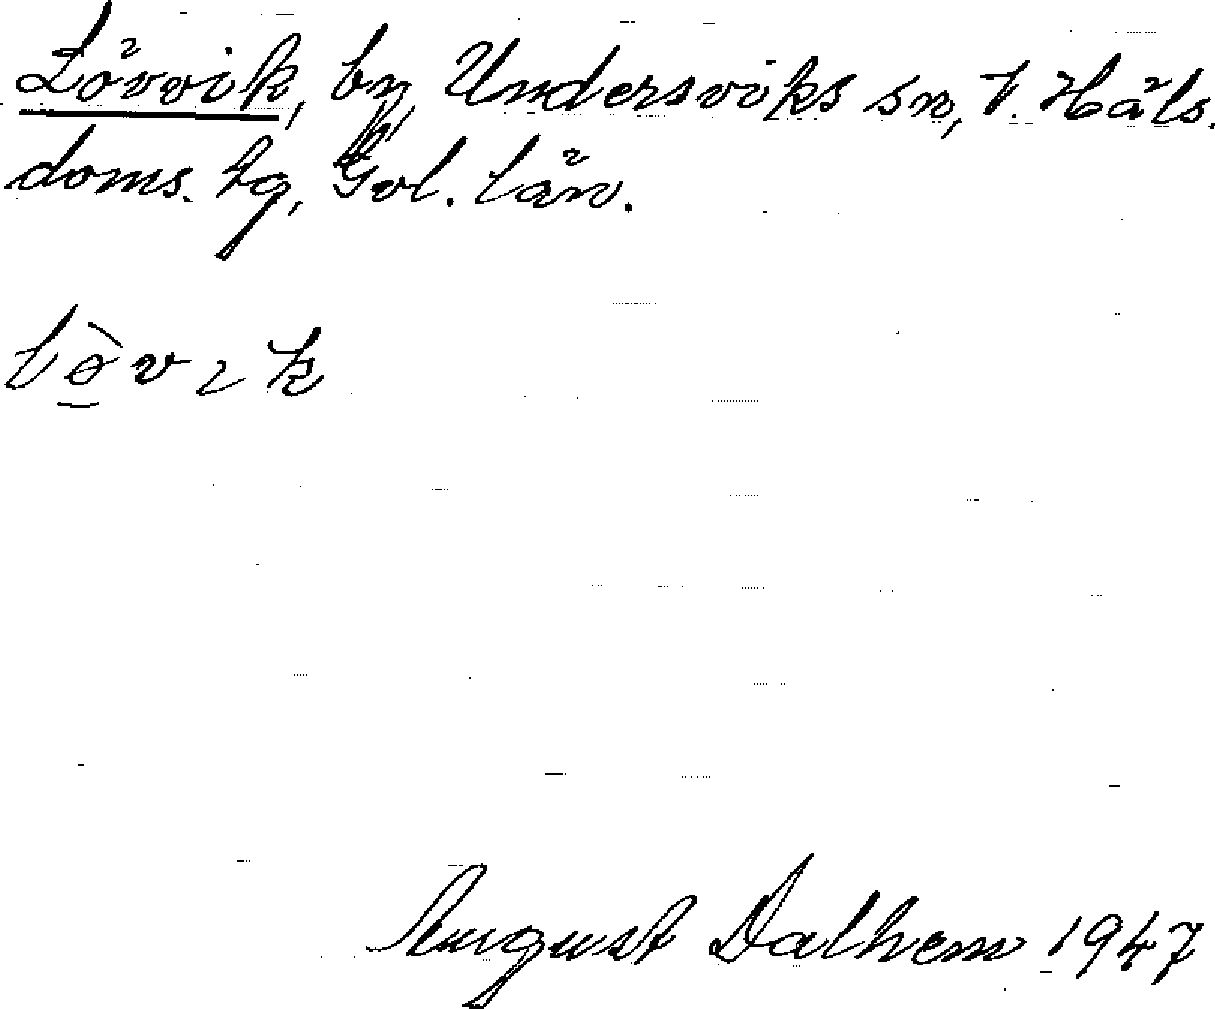 Lövvik, by, Undersviks sn, V. Häls.
doms. lg, Gvl. län.
lò̱vık
August Dalhem 1947